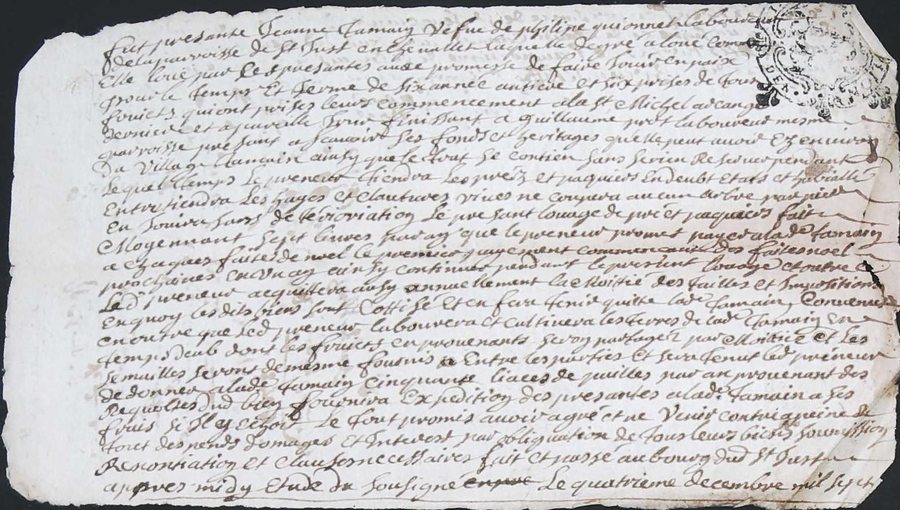 fut presante Jeanne Jamain vefue de philipe quionnet laboureur
de la parroisse de St Just en chevallet laquelle de gre a loué comme
Elle loue par Les presantes avec promesse de faire Jouir en paix
pour le Temps Et Terme de six année antiere et six prises de Tous
fruicts qui ont prises leurs commencement a la St Michel archange
derniere et a pareille Jour finissant a Guillaume prost laboureur mesme
parroisse presans a scavoir Ses fonds et heritages quelle peut avoir Ez environs
Du Village Jamain ainsy que le tout Se contien sans rien Reserver pendant
lequel temps Le preneur Tiendra Les prez et paquiers En deubt Estat et
Entretiendra Les hayes et clautures vives ne coupera aucun arbre par pied
En Jouira sans deterioriation Le presant louage de pré et paquiers fait
Moyennant Sept livres par an que le preneur promet payer a lade Jamain
a chaques faites de noel le premier payement commencera des faites noel
prochaines en un an ainsy continuer pendant le present louage et outre
Led preneur acquitera aussy annuellement la Moitié des tailles et Impositions
En quoy les dits biens sont Cottisse et en fera tenir quitte lade Jamain, Convenu
en outre que led preneur labourera et Cultivera les Terres de lade Jamain en
temps deub dont les fruicts en provenants seron partager par Moitié et les
semailles serons de mesme fournis Entre les parties et sera tenut led preneur
de donner a lade Jamain Cinquante liaces de pailles par an provenant des
Requoltes dud bien fournira Expedition des presantes a lade Jamain a ses
frais Le Tout promis avoir agré et ne Venir contre a peine de
Tout despends domages et Interest par obliguation de tous leurs biens soumission
Renontiation et Clauses necessaires fait et passé au bourg dud St Just
appres midy Etude du Sousigné Le quatrieme decembre mil sept